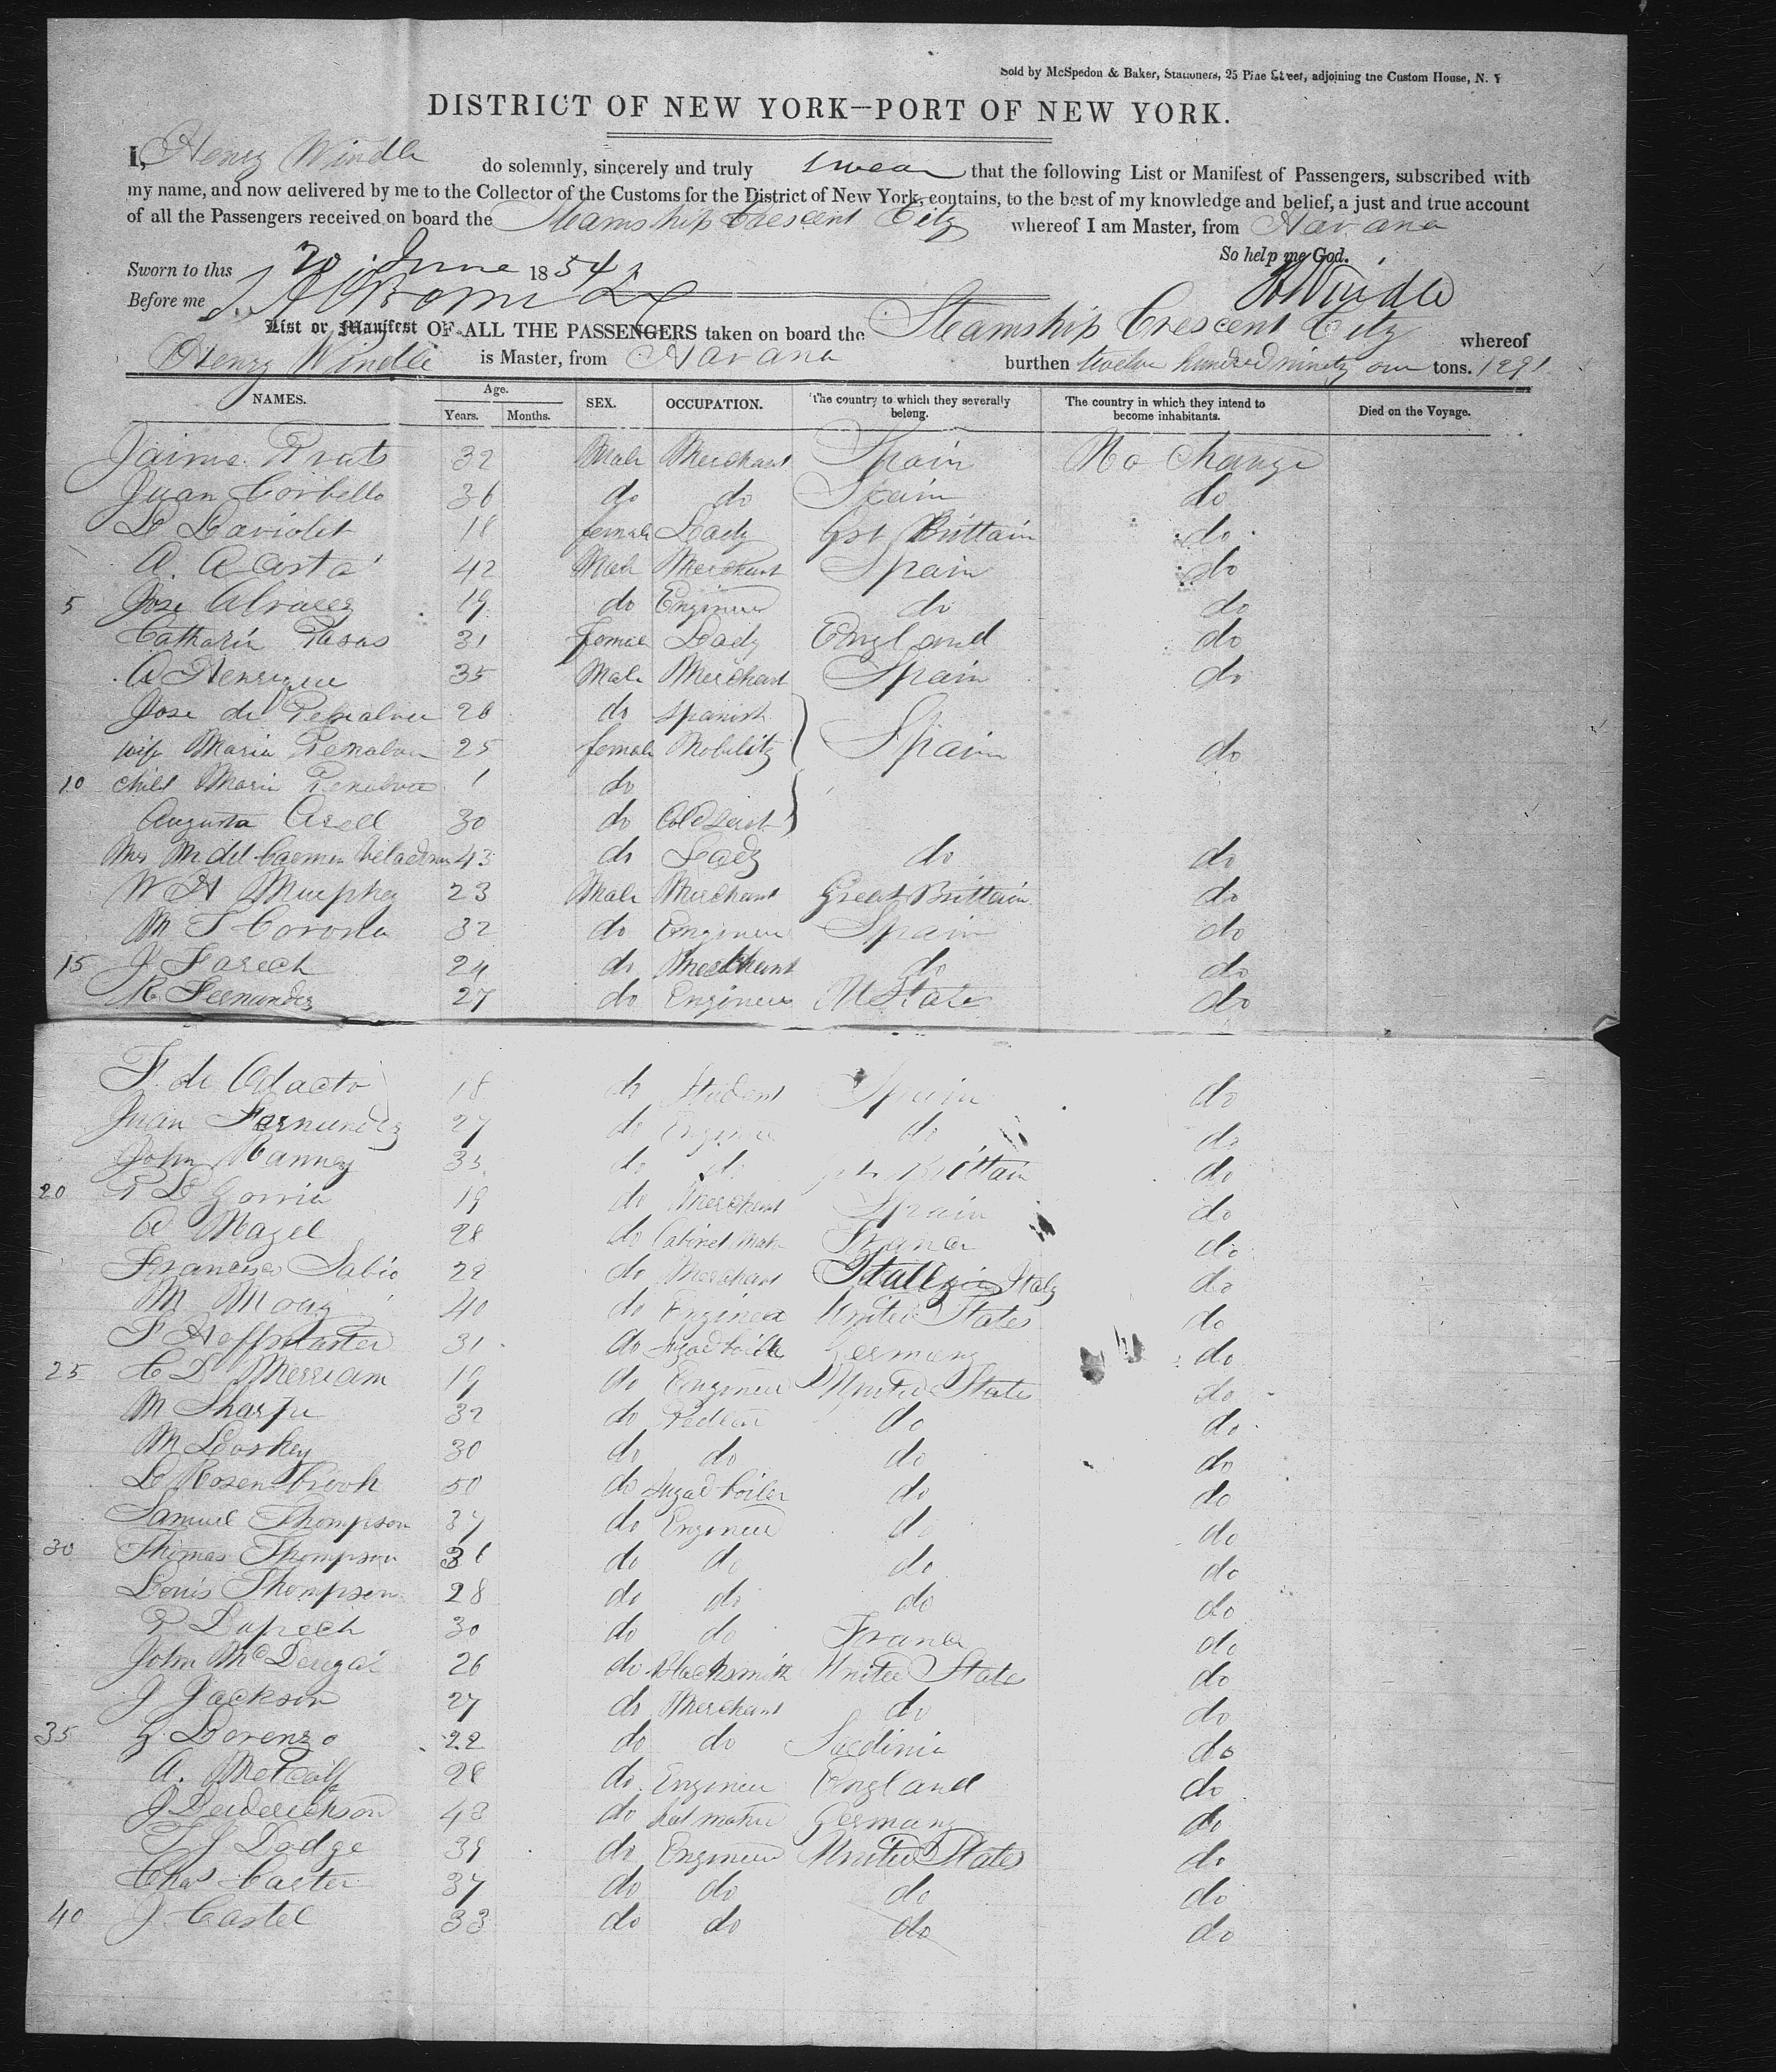 Sold by McSpedon & Baker, Stationers, 25 Pine Street, adjoining the Custom House, N. Y
DISTRICT OF NEW YORK—PORT OF NEW YORK.
I, Henry Windle do solemnly, sincerely and truly swear that the following List or Manifest of Passengers, subscribed with
my name, and now delivered by me to the Collector of the Customs for the District of New York, contains, to the best of my knowledge and belief, a just and true account
of all the Passengers received on board the Steamship Crescent City whereof I am Master, from Havana
So help me God.
Sworn to this 20 June 1854
Before me H Windle
List or Manifest OF ALL THE PASSENGERS taken on board the Steamship Crescent City whereof
Henry Windle is Master, from Havana burthen twelve hundred ninety one tons. 1291
NAMES. Age. Years. Months. SEX. OCCUPATION. The country to which they severally belong. The country in which they intend to become inhabitants. Died on the Voyage.
Jaime Prats 32 Male Merchant Spain No Change
Juan Corbello 36 do do Spain do
L Laviolet 18 female Lady Gt Brittain do
A. Acosta 42 Male Merchant Spain do
5 Jose Alvarez 19 do Engineer do do
Catharin Pasas 31 Female Lady England do
A Henrique 35 Male Merchant Spain do
Jose de Penalver 26 do Spanish
wife Maria Penalver 25 female Nobility Spain do
10 child Maria Penalver 1 do
Augusta 30 do
Mrs M del Carmen 43 do Lady do do
W H Murphey 23 Male Merchant Great Brittain do
M T Corona 32 do Engineer Spain do
15 J Farech 24 do Merchant do do
R Fernandez 27 do Engineer U States do
F. de Adacto 18 do Student Spain do
Juan Fernandez 27 do Engineer do do
John Ranney 33 do do Brittain do
20 P L Gorria 19 do Merchant Spain do
A Mazel 28 do Cabinet Mak France do
Francisco Sabio 22 do Merchant Italy do
M Moag 40 do Engineer United States do
F Hoffmaster 31 do Sugar boiler Germany do
25 C D Merriam 19 do Engineer United States do
M Sharpe 32 do Pedler do do
M Loskey 30 do do do do
L Rosenbrook 50 do Sugar boiler do do
Samuel Thompson 37 do Engineer do do
30 Thomas Thompson 36 do do do do
Louis Thompson 28 do do do do
P Dupech 30 do do France do
John McDougal 26 do Blacksmith United States do
J Jackson 27 do Merchant do do
35 G Lorenzo 22 do do Sardinia do
A. Metcalf 28 do Engineer England do
J Deiderickson 43 do Germany do
T J Dodge 39 do Engineer United States do
Chas Carter 37 do do do do
40 J Castel 33 do do do do